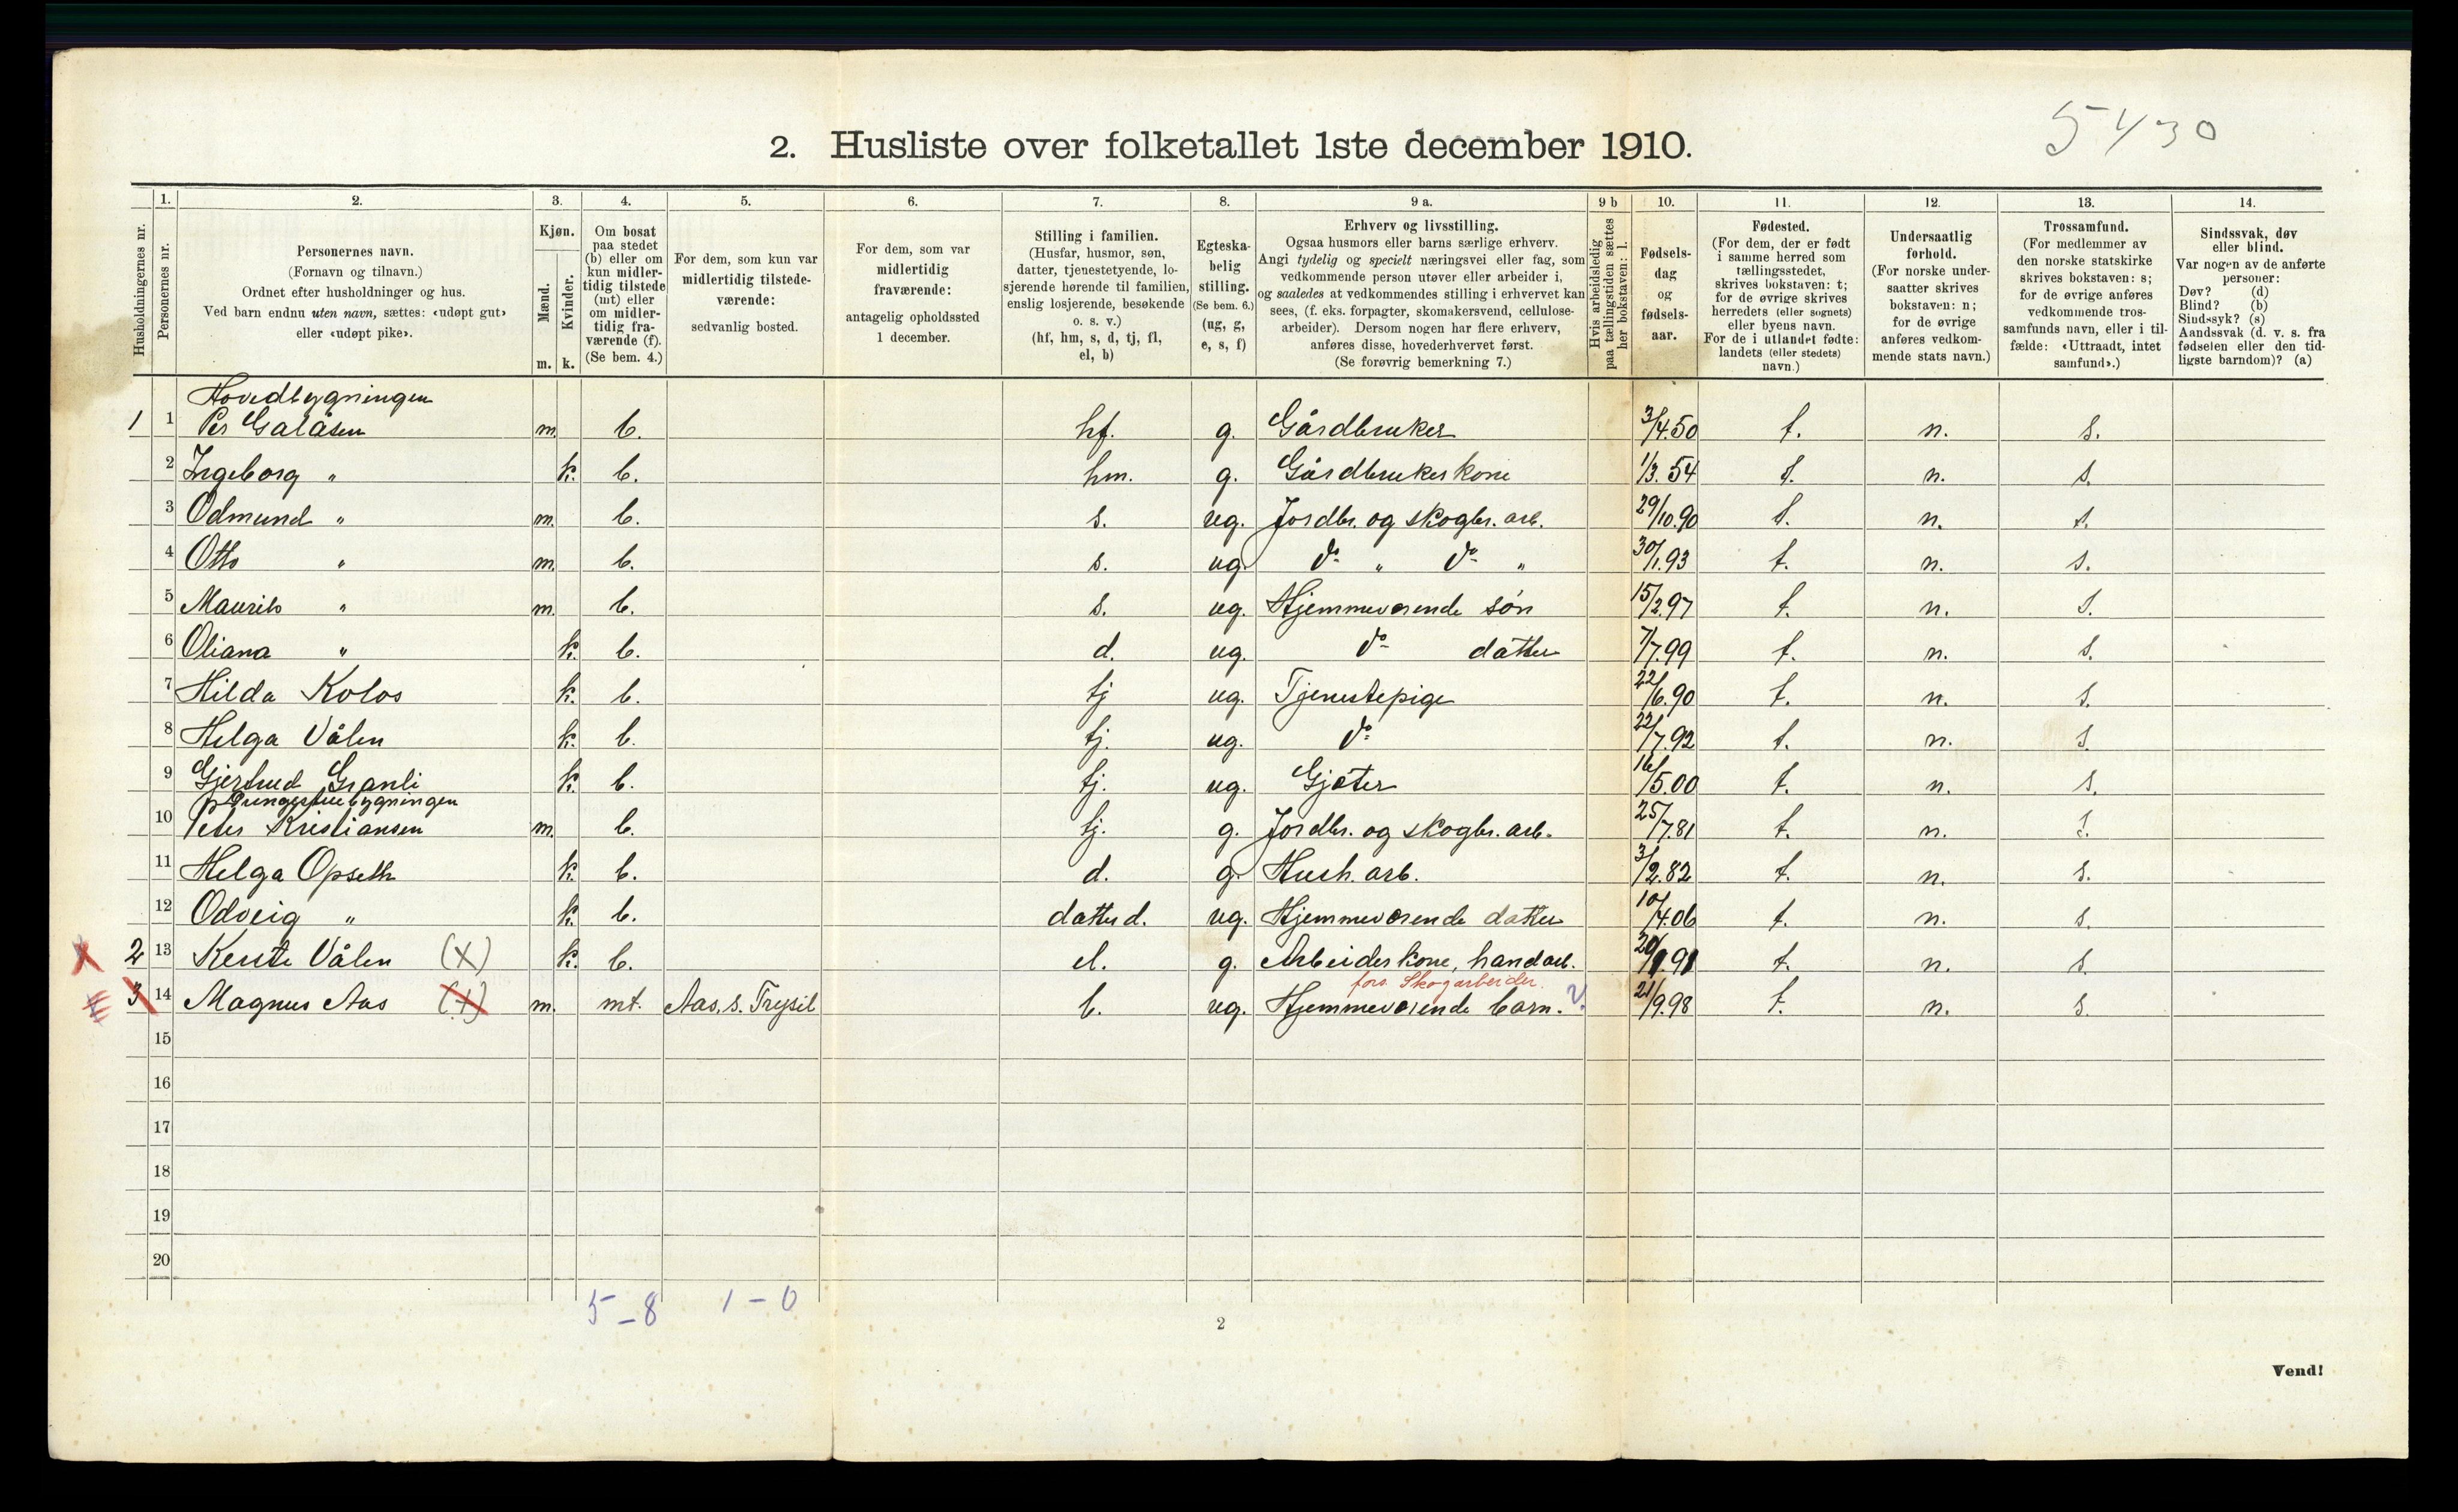 5430
2. Husliste over folketallet 1ste december 1910.
Husholdningernes nr.
1.
Personernes nr.
2.
Personernes navn.
(Fornavn og tilnavn.)
Ordnet efter husholdninger og hus.
Ved barn endnu uten navn, sættes: «udøpt gut»
eller «udøpt pike».
3.
Kjøn.
Mænd.
Kvinder.
m. k.
4.
Om bosat
paa stedet
(b) eller om
kun midler-
tidig tilstede
(mt) eller
om midler-
tidig fra-
værende (f).
(Se bem. 4.)
5.
For dem, som kun var
midlertidig tilstede-
værende:
sedvanlig bosted.
6.
For dem, som var
midlertidig
fraværende:
antagelig opholdssted
1 december.
7.
Stilling i familien.
(Husfar, husmor, søn,
datter, tjenestetyende, lo-
sjerende hørende til familien,
enslig losjerende, besøkende
o. s. v.)
(hf, hm, s, d, tj, fl,
el, b)
8.
Egteska-
belig
stilling.
(Se bem. 6.)
(ug, g,
e, s, f)
9 a.
Erhverv og livsstilling.
Ogsaa husmors eller barns særlige erhverv.
Angi tydelig og specielt næringsvei eller fag, som
vedkommende person utøver eller arbeider i,
og saaledes at vedkommendes stilling i erhvervet kan
sees, (f. eks. forpagter, skomakersvend, cellulose-
arbeider). Dersom nogen har flere erhverv,
anføres disse, hovederhvervet først.
(Se forøvrig bemerkning 7.)
9 b
Hvis arbeidsledig
paa tællingstiden sættes
her bokstaven: l.
10.
Fødsels-
dag
og
fødsels-
aar.
11.
Fødested.
(For dem, der er født
i samme herred som
tællingsstedet,
skrives bokstaven: t;
for de øvrige skrives
herredets (eller sognets)
eller byens navn.
For de i utlandet fødte:
landets (eller stedets)
navn.)
12.
Undersaatlig
forhold.
(For norske under-
saatter skrives
bokstaven: n;
for de øvrige
anføres vedkom-
mende stats navn.)
13.
Trossamfund.
(For medlemmer av
den norske statskirke
skrives bokstaven: s;
for de øvrige anføres
vedkommende tros-
samfunds navn, eller i til-
fælde: «Uttraadt, intet
samfund».)
14.
Sindssvak, døv
eller blind.
Var nogen av de anførte
personer:
Døv? (d)
Blind? (b)
Sindssyk? (s)
Aandssvak (d. v. s. fra
fødselen eller den tid-
ligste barndom)? (a)
Hovedbygningen
1 1 Per Galåsen m. b. hf. g. Gårdbruker 3/4.50 t. n. s.
2 Ingeborg " k. b. hm. g. Gårdbrukerkone 1/3.54 t. n. s.
3 Odmund " m. b. s. ug. Jordbr. og skogbr. arb. 29/10.90 t. n. s.
4 Otto " m. b. s. ug. do " do " 30/1.93 t. n. s.
5 Maurits " m. b. s. ug. Hjemmeværende søn 15/2.97 t. n. s.
6 Oliana " k. b. d. ug. do datter 7/7.99 t. n. s.
7 Hilda Kolos k. b. tj ug. Tjenestepige 22/6.90 t. n. s.
8 Helga Vålen k. b. tj. ug. do 22/7.92 t. n. s.
9 Gjertrud Granli k. b. tj. ug. Gjæter 16/5.00 t. n. s.
10 Peter Kristiansen m. b. tj. g. Jordbr. og skogbr. arb. 25/7.81 t. n. s.
11 Helga Opseth k. b. d. g. Hush. arb. 3/2.82 t. n. s.
12 Odveig " k. b. datter d. ug. Hjemmeværende datter 10/4.06 t. n. s.
X 2 13 Kerste Vålen (X) k. b. el. g. Arbeiderkone, handarb. t. n. s.
fors. Skogarbeider.
3 14 Magnus Aas (X) m. mt. Aas, s. Trysil b. ug. Hjemmeværende barn. ? 21/9.98 t. n. s.
15
16
17
18
19
20
5-8 1-0
2
Vend!